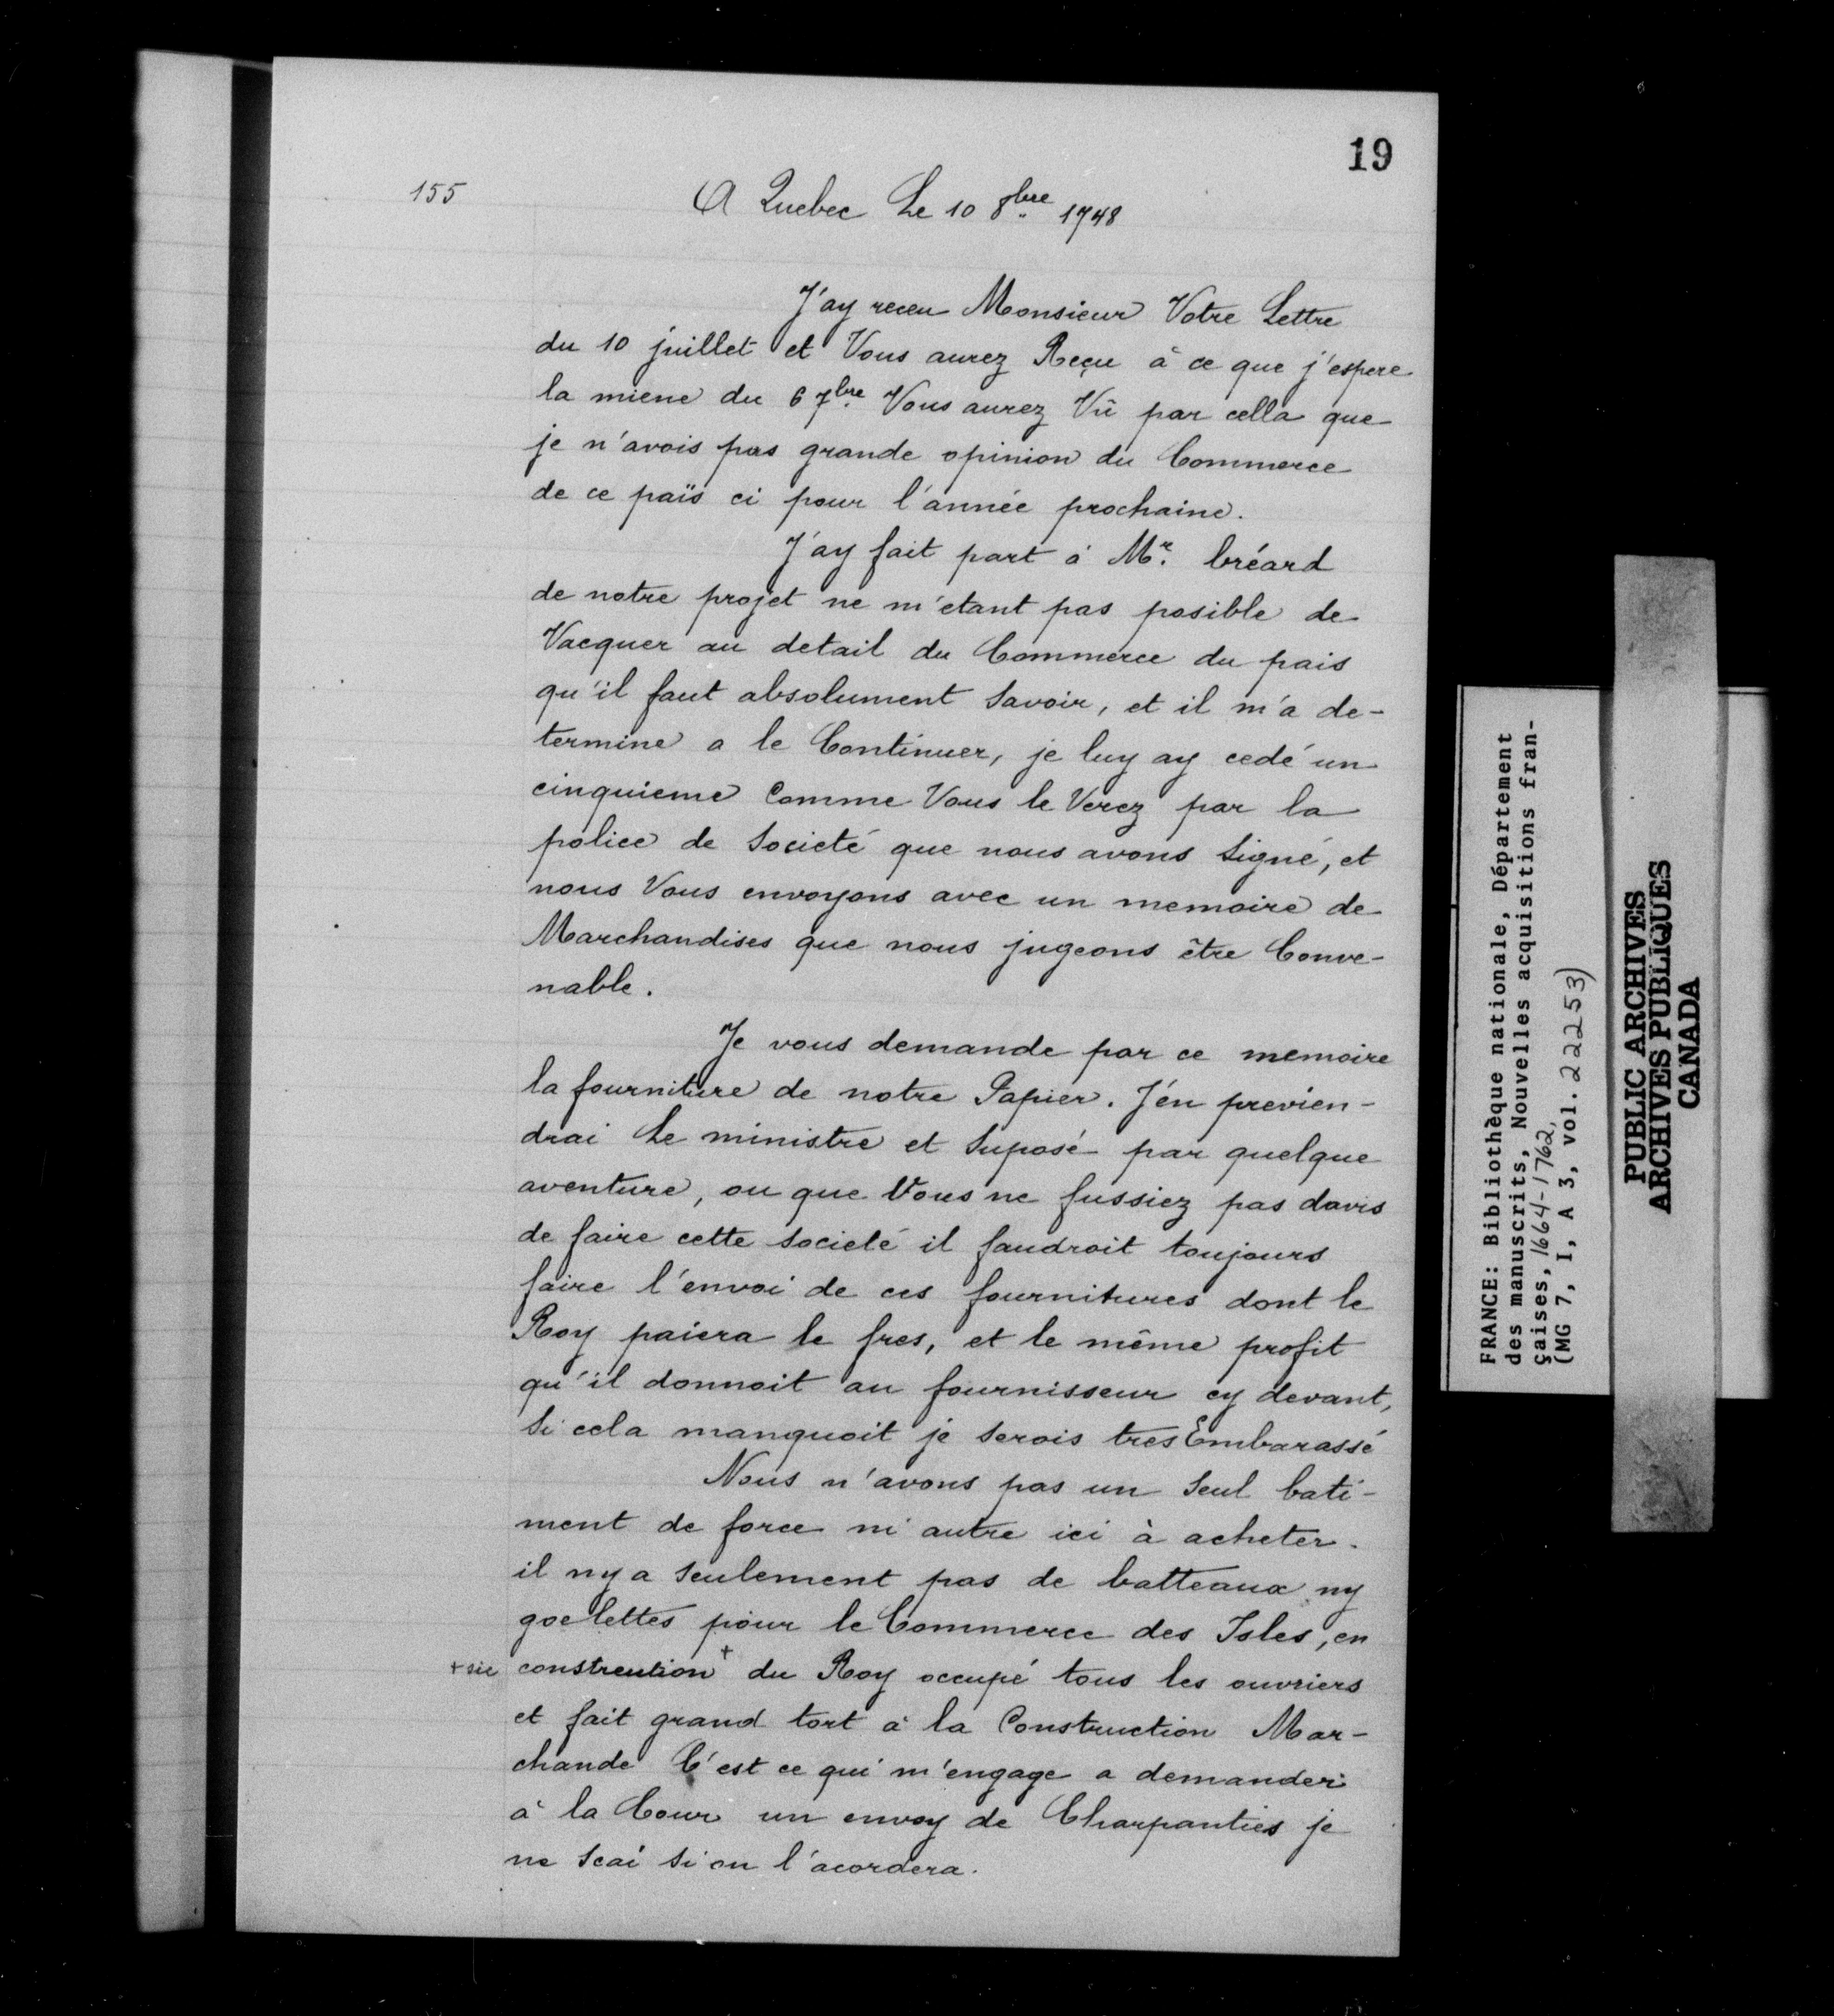 19
155
A Quebec Le 10 8bre 1748
J'ay receu Monsieur Votre Lettre
du 10 juillet et Vous aurez Reçu à ce que j'espere
la miene du 6 7bre. Vous aurez Vû par cella que
je n'avois pas grande opinion du Commerce
de ce païs ci pour l'année prochaine.
J'ay fait part à Mr. bréard
de notre projet ne m'etant pas posible de
Vacquer au detail du Commerce du pais
qu'il faut absolument Savoir, et il m'a de-
termine a le Continuer, je luy ay cedé un
cinquieme Comme Vous le Verez par la
police de Societé que nous avons Signé, et
nous Vous envoyons avec un memoire de
Marchandises que nous jugeons être Conve-
nable.
Je vous demande par ce memoire
la fourniture de notre Papier. J'en previen-
drai Le ministre et Suposé par quelque
aventure, ou que Vous ne fussiez pas davis
de faire cette Societé il faudroit toujours
faire l'envoi de ces fournitures dont le
Roy paiera le fres, et le même profit
qu'il donnoit au fournisseur cy devant,
Si cela manquoit je serois tres Embarassé
Nous n'avons pas un Seul bati-
ment de force ni autre ici à acheter.
il ny a Seulement pas de batteaux ny
goelettes pour le Commerce des Isles, en
+ sic constreution + du Roy occupé tous les ouvriers
et fait grand tort à la Construction Mar-
chande C'est ce qui m'engage a demander
à la Cour un envoy de Charpanties je
ne Scai Si on l'acordera.
FRANCE: Bibliothèque nationale, Département
des manuscrits, Nouvelles acquisitions fran-
çaises, 1664-1762,
(MG 7, I, A 3, vol. 22253)
PUBLIC ARCHIVES
ARCHIVES PUBLIQUES
CANADA